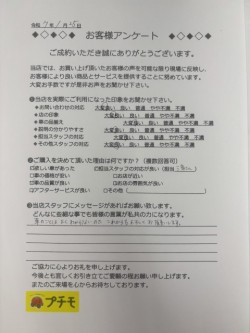 令和 7年 1月
お客様アンケート
ご成約いただき誠にありがとうございます。
当店では、お買い上げ頂いたお客様の声を可能な限り現場に反映し、
お客様により良い商品とサービスを提供することに努めています。
大変お手数ですが是非お声をお聞かせ下さい。
❶当店を実際にご利用になった印象をお聞かせ下さい。
●お店の対応 大変良い 良い 普通 やや不満 不満
●店の印象 大変良い 良い 普通 やや不満 不満
●車の品揃え 大変良い 良い 普通 やや不満 不満
●説明の分かりやすさ 大変良い 良い 普通 やや不満 不満
●担当スタッフの対応 大変良い 良い 普通 やや不満 不満
●その他スタッフの対応 大変良い 良い 普通 やや不満 不満
❷ご購入を決めて頂いた理由は何ですか？（複数回答可）
□欲しい車があった □担当スタッフの対応が良い（担当
□価格が安い □お店が近い
□車の品質が良い □お店の雰囲気が良い
□アフターサービスが良い □その他（
❸当店スタッフにメッセージがあればお願い致します。
どんなに些細な事でも皆様の言葉が私共の力になります。
ご協力に心よりお礼を申し上げます。
今後とも宜しくお引き立てご愛顧の程お願い申し上げます。
またのご来場を心からお待ちしております。
プチモ